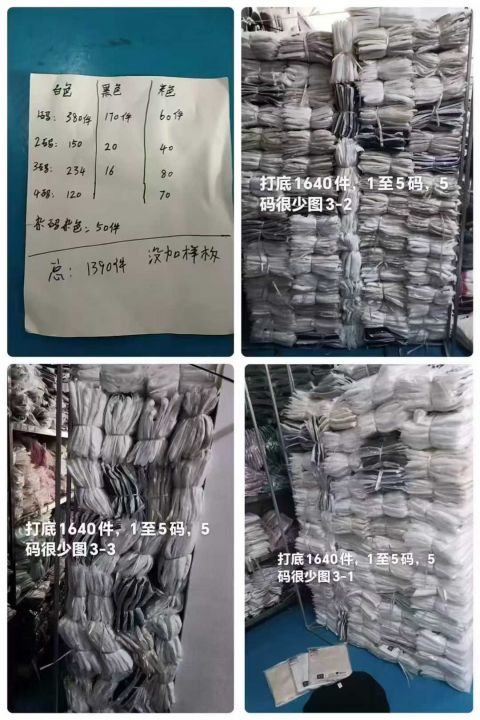 白色 黑色 杏色
1码: 380件 170件 60件
2码: 150 20 40
3码: 234 16 80
4码: 120 70
杂码杂色: 50件
总: 1390件 没加样枚
打底1640件，1至5码，5
码很少图3-2
打底1640件，1至5码，5
码很少图3-3
打底1640件，1至5码，5
码很少图3-1